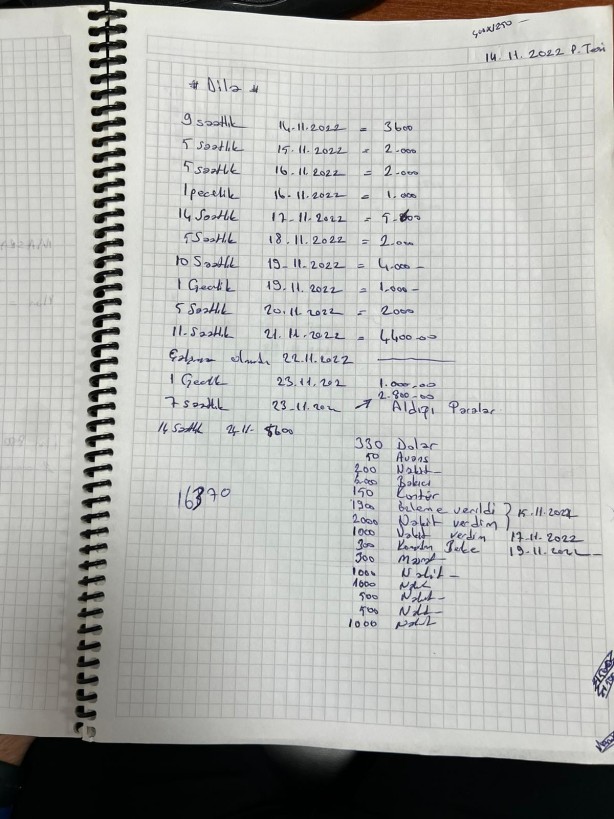 14.11.2022 P.Tesi
* Dila *
9 saatlik 14.11.2022 = 3600
5 saatlik 15.11.2022 = 2.000
5 saatlik 16.11.2022 = 2.000
1 pecelik 16.11.2022 = 1.000
14 Saatlik 17.11.2022 = 5.600
5 Saatlik 18.11.2022 = 2.000
10 Saatlik 19.11.2022 = 4.000-
1 Gecelik 19.11.2022 = 1.000-
5 Saatlik 20.11.2022 = 2000
11. Saatlik 21.11.2022 = 4400.00
22.11.2022
1 Gecelik 23.11.202 1.000.00
7 saatlik 23.11.202 2.800.00
Aldıgı Paralar
14 Saatlik 24.11- 5600
330 Dolar
50 Avans
200 Nakit
Bakıcı
150 Kontör
16370
verildi 15.11.2022
2000 Nakit verdim
1000 Nakit verdim 17.11.2022
300 19.11.2022
300
1000 Nakit
1000 Nakit
500 Nakit
500 Nakit
1000 Nakit